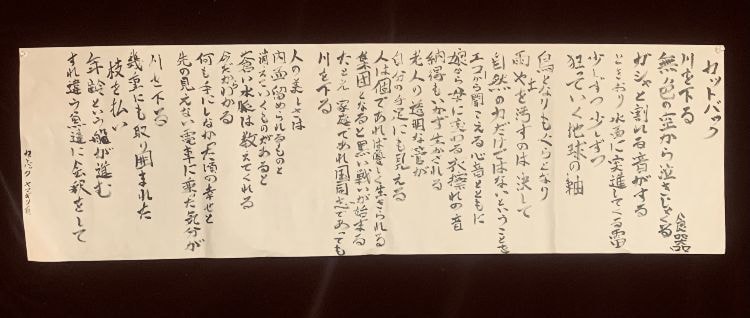 セットバック
川を下る
無人の空から泣きじゃくる
食器
ガシャと割れる音がする
ときおり水面に突進してくる雷
少しずつ少しずつ
狂っていく地球の軸
鳥となりもぐらとなり
雨や土を汚すのは決して
自然の力だけではないということを
エコーから聞こえる心音とともに
娘から母に変わる水擦れの音
納得もいかず生かされる
老人の透明な管が
自分の手足にも見える
人は個であれば優しく生きられる
集団となると黒い戦いが始まる
たとえ家庭であれ国同志であっても
川を下る
人の美しさは
内面留められるものと
消えていくものがあると
蒼い水脈は教えてくれる
今だからわかる
何も手にしなかった頃の幸せと
先の見えない電車に乗った気分が
川を下る
幾重にも取り囲まれた
枝を払い
年齢という艦が進む
すれ違う魚達に会釈をして